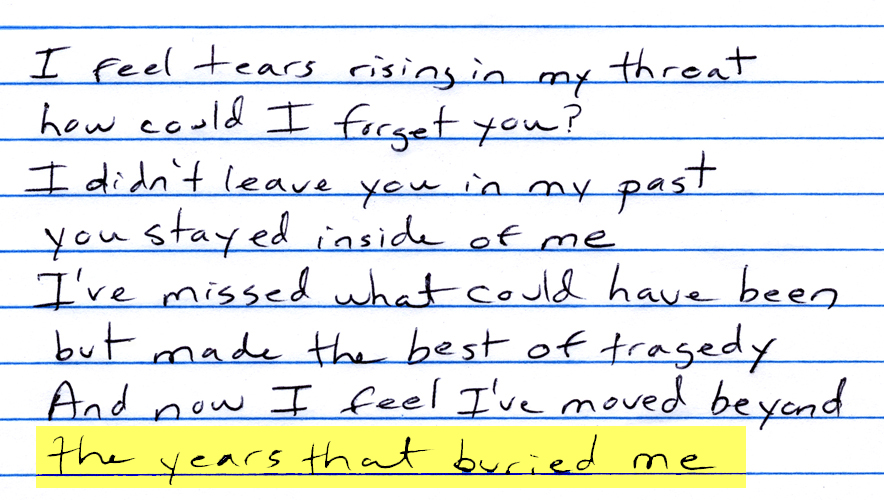 I feel tears rising in my throat
how could I forget you?
I didn't leave you in my past
you stayed inside of me
I've missed what could have been
but made the best of tragedy
And now I feel I've moved beyond
the years that buried me